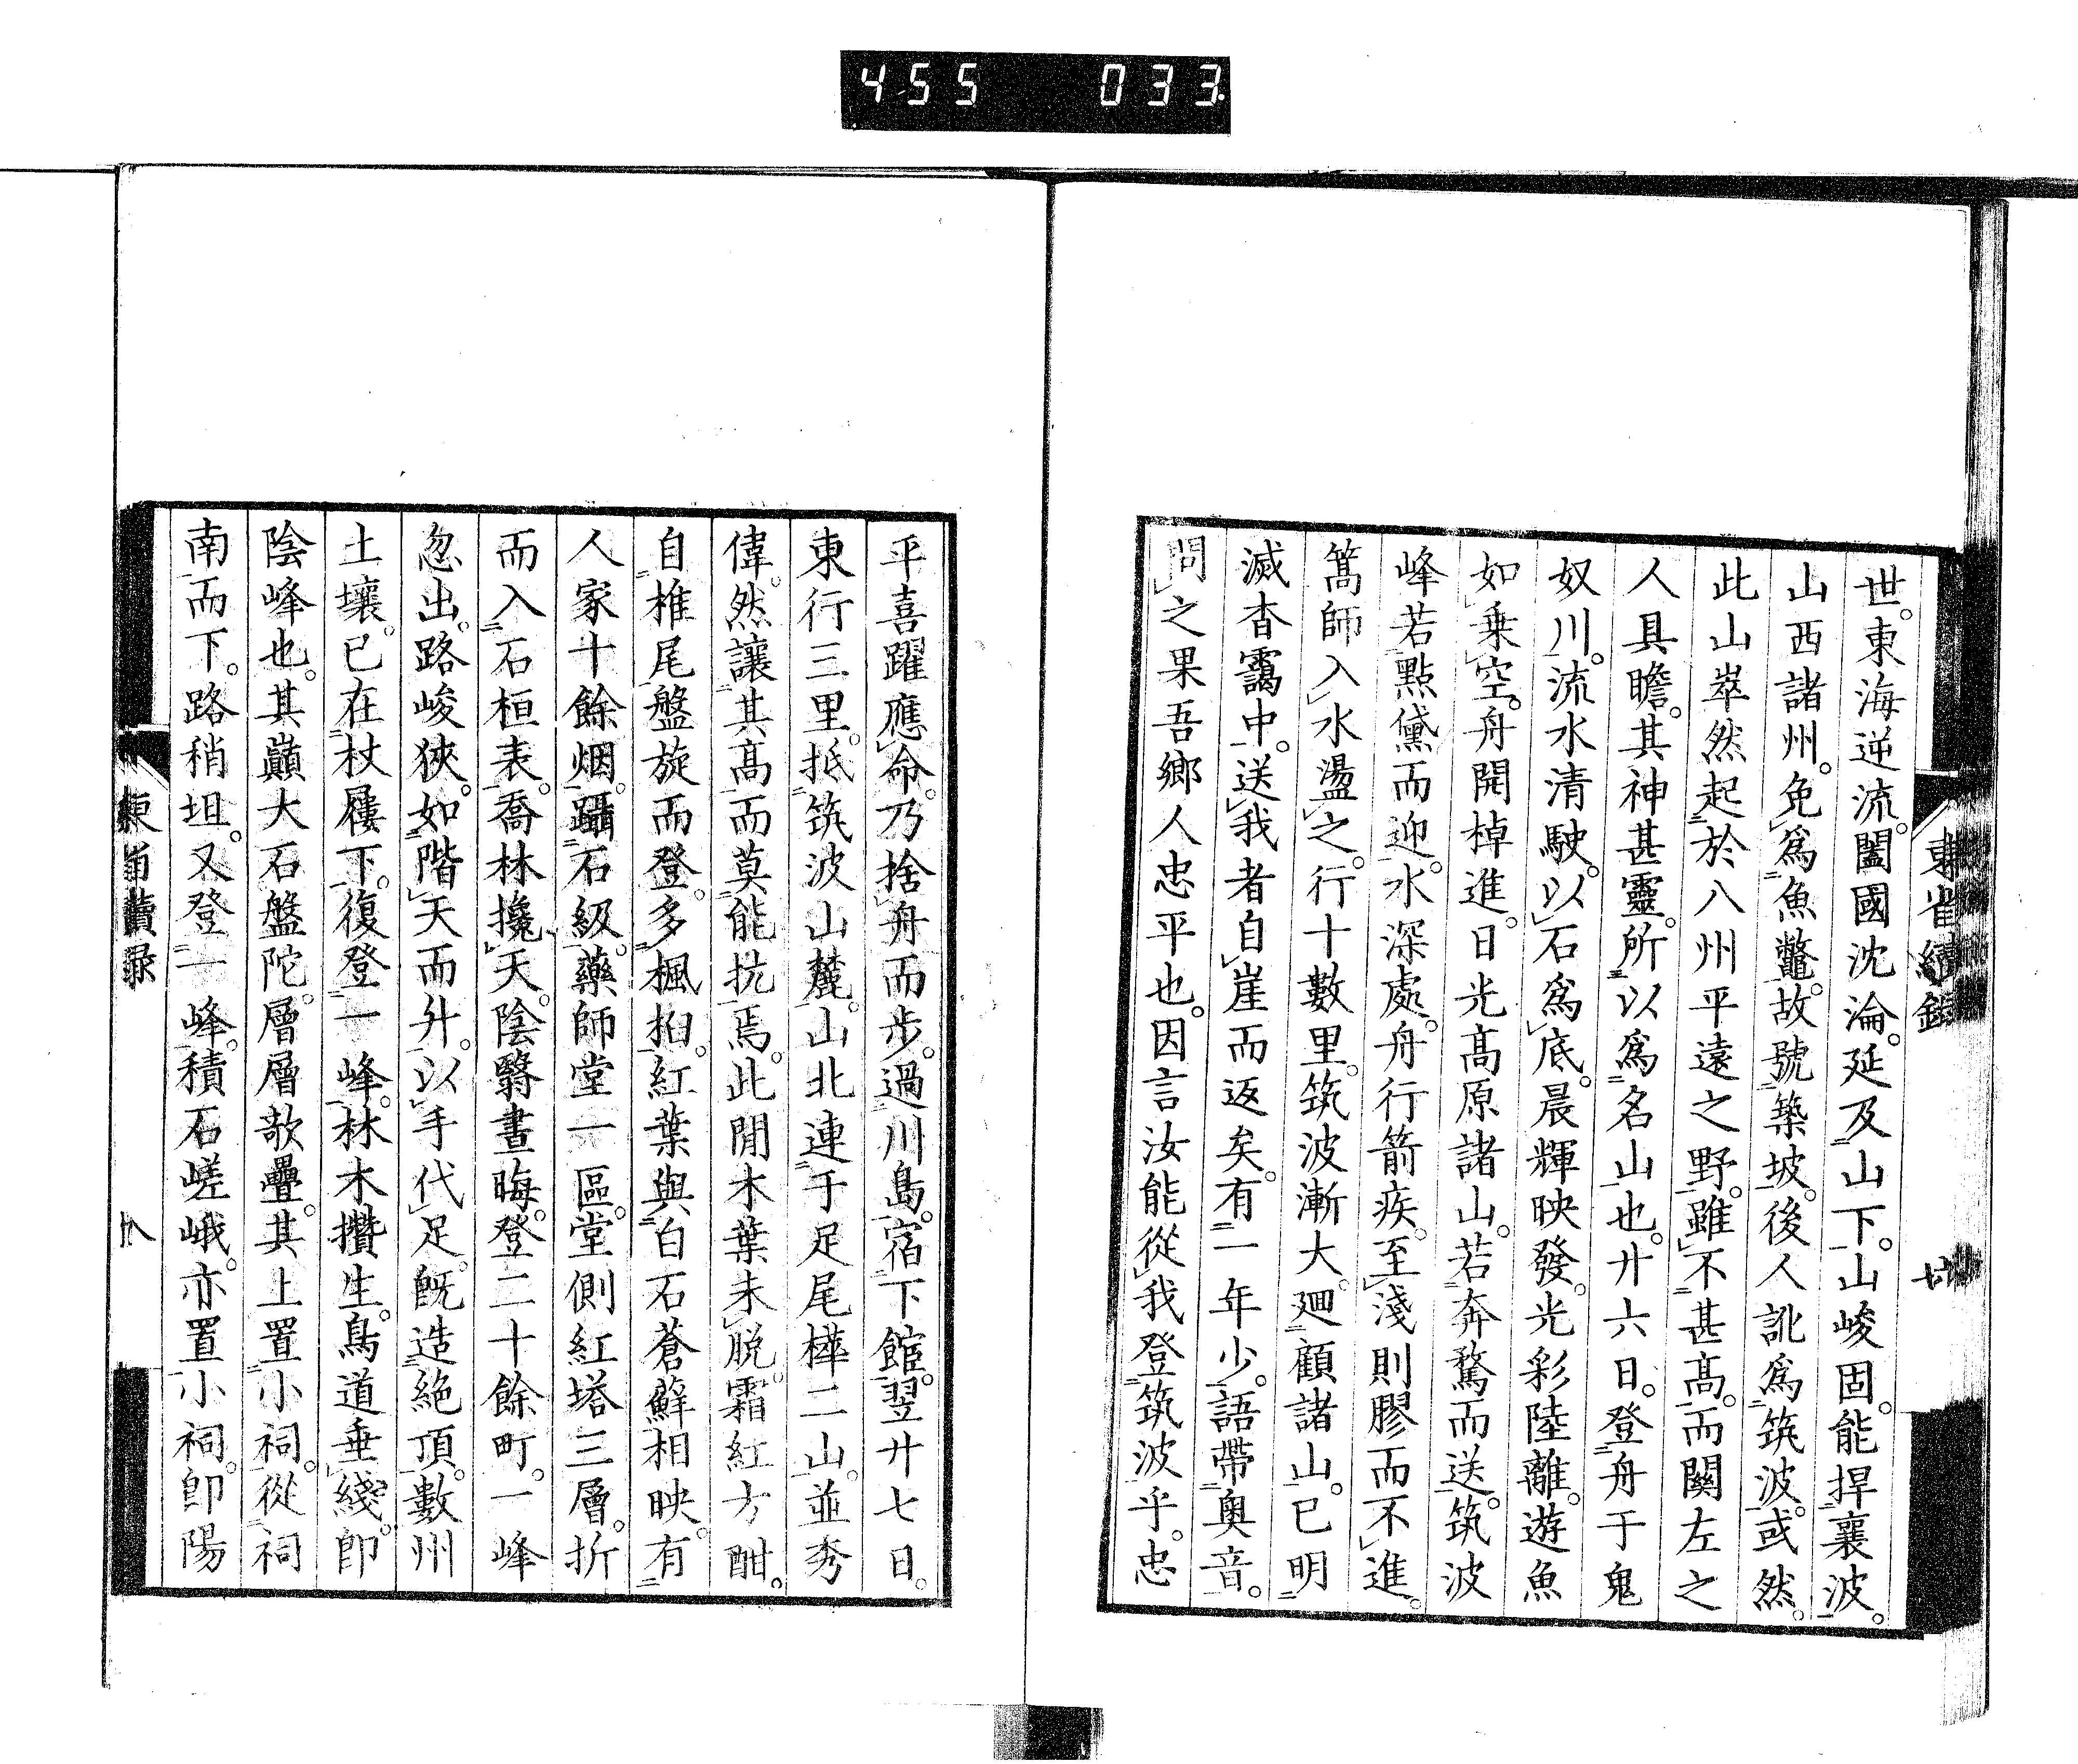 455 033
世。東海逆流。闔國沈淪。延及山下。山峻固。能捍襄波。
山西諸州。免爲魚鼈。故號築坡。後人訛爲筑波。或然。
此山崒然起於八州平遠之野。雖不甚高。而關左之
人具瞻。其神甚靈。所以爲名山也。廾六日。登舟于鬼
奴川。流水清駛。以石爲底。晨輝映發。光彩陸離。遊魚
如乗空。舟開棹進。日光高原諸山。若奔騖而送。筑波
峰若點黛而迎。水深處。舟行箭疾。至淺則膠而不進。
篙師入水盪之。行十數里。筑波漸大。廻顧諸山。已明
滅杳靄中。送我者自崖而返矣。有一年少。語帶奧音。
問之果吾鄉人忠平也。因言汝能從我登筑波乎。忠
平喜躍應命。乃捨舟而步。過川島。宿下館。翌廾七日。
東行三里。抵筑波山麓。山北連于足尾樺二山。並秀
偉。然讓其高而莫能抗焉。此閒木葉未脫。霜紅方酣。
自椎尾盤旋而登。多楓桕。紅葉與白石蒼蘚相映。有
人家十餘烟。躡石級。藥師堂一區。堂側紅塔三層。折
而入石桓表。喬林攙天。陰翳晝晦。登二十餘町。一峰
忽出。路峻狹。如階天而升。以手代足。旣造絕頂。數州
土壤。已在杖屨下。復登一峰。林木攢生。鳥道垂綫。卽
陰峰也。其巓大石盤陀。層層欹疊。其上置小祠。從祠
南而下。路稍坦。又登一峰。積石嵯峨。亦置小祠。卽陽